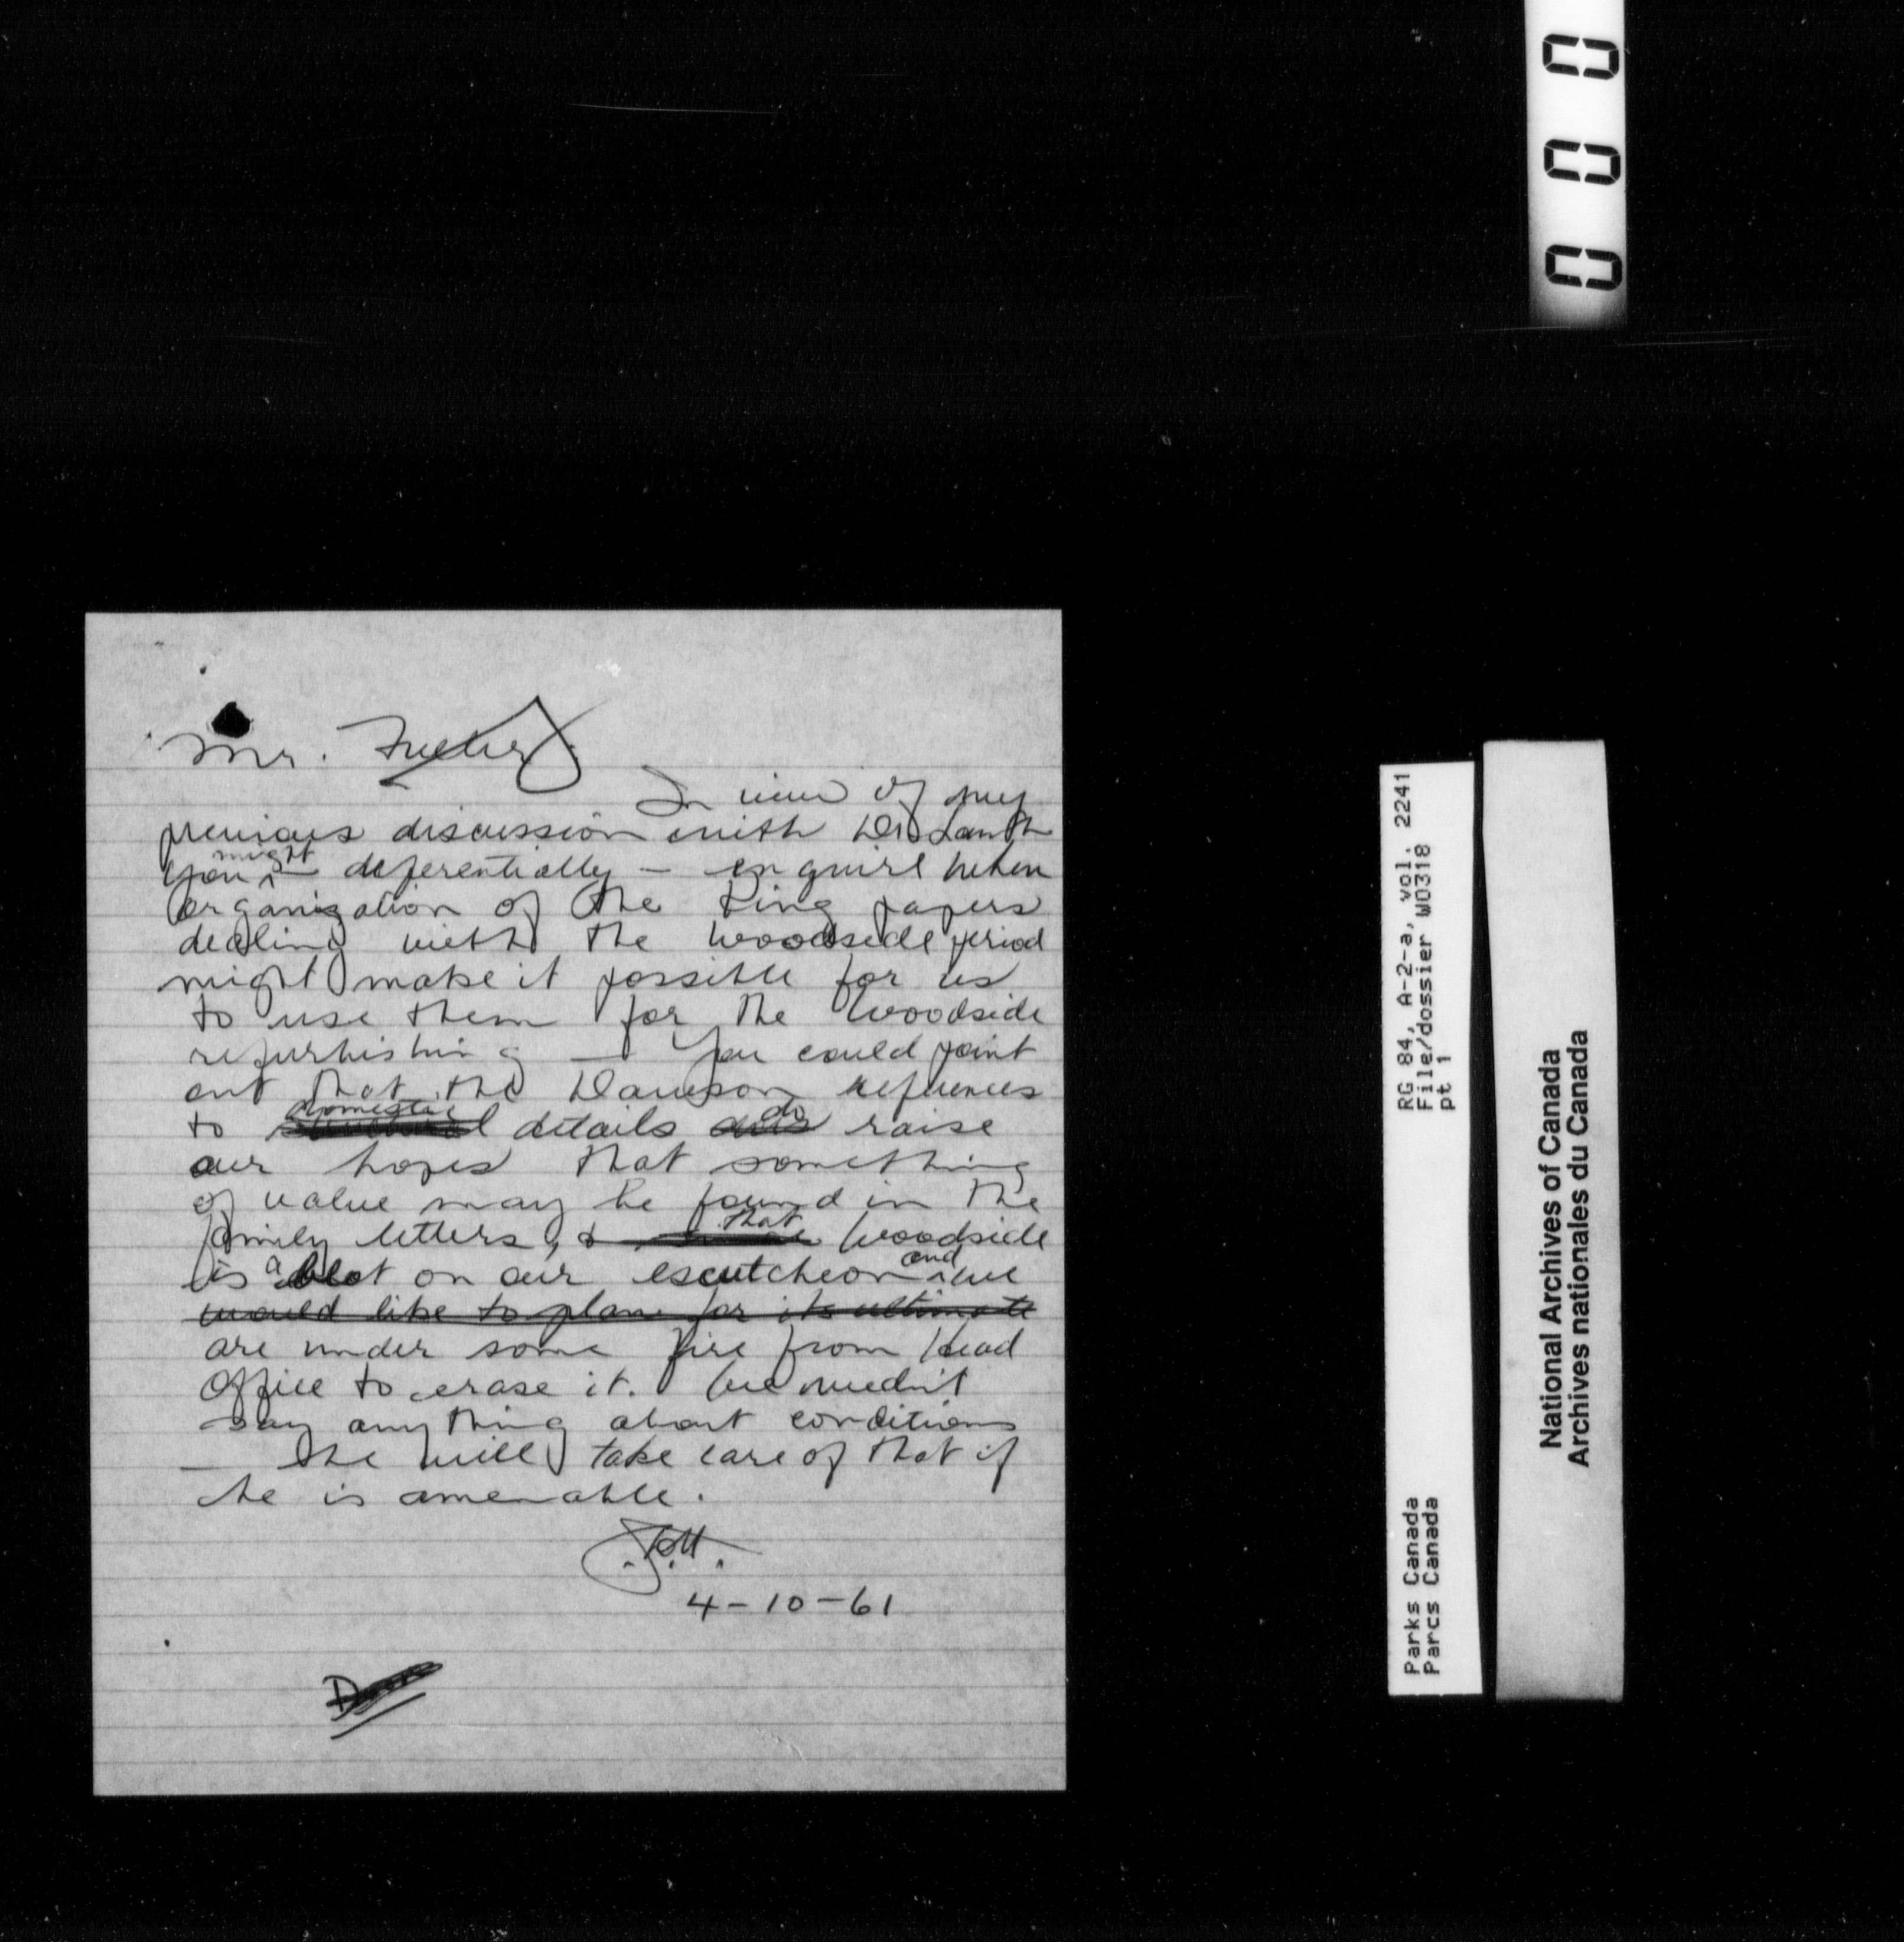 0 0 0
Mr.
In view of my
previous discussion with Dr. Lamb
you might deferentially – enquire when
organization of the King papers
dealing with the Woodside period
might make it possible for us
to use them for the Woodside
refurbishing – You could point
out that the Dawson references
to domestic details do raise
our hopes that something
of value may be found in the
family letters, & that Woodside
is a blot on our escutcheon and we
would like to plan for its ultimate
are under some fire from Head
Office to erase it. We needn't
say anything about conditions
– he will take care of that if
he is amenable.
4-10-61
RG 84, A-2-a, vol. 2241
File/dossier WO318
pt 1
Parks Canada
Parcs Canada
National Archives of Canada
Archives nationales du Canada